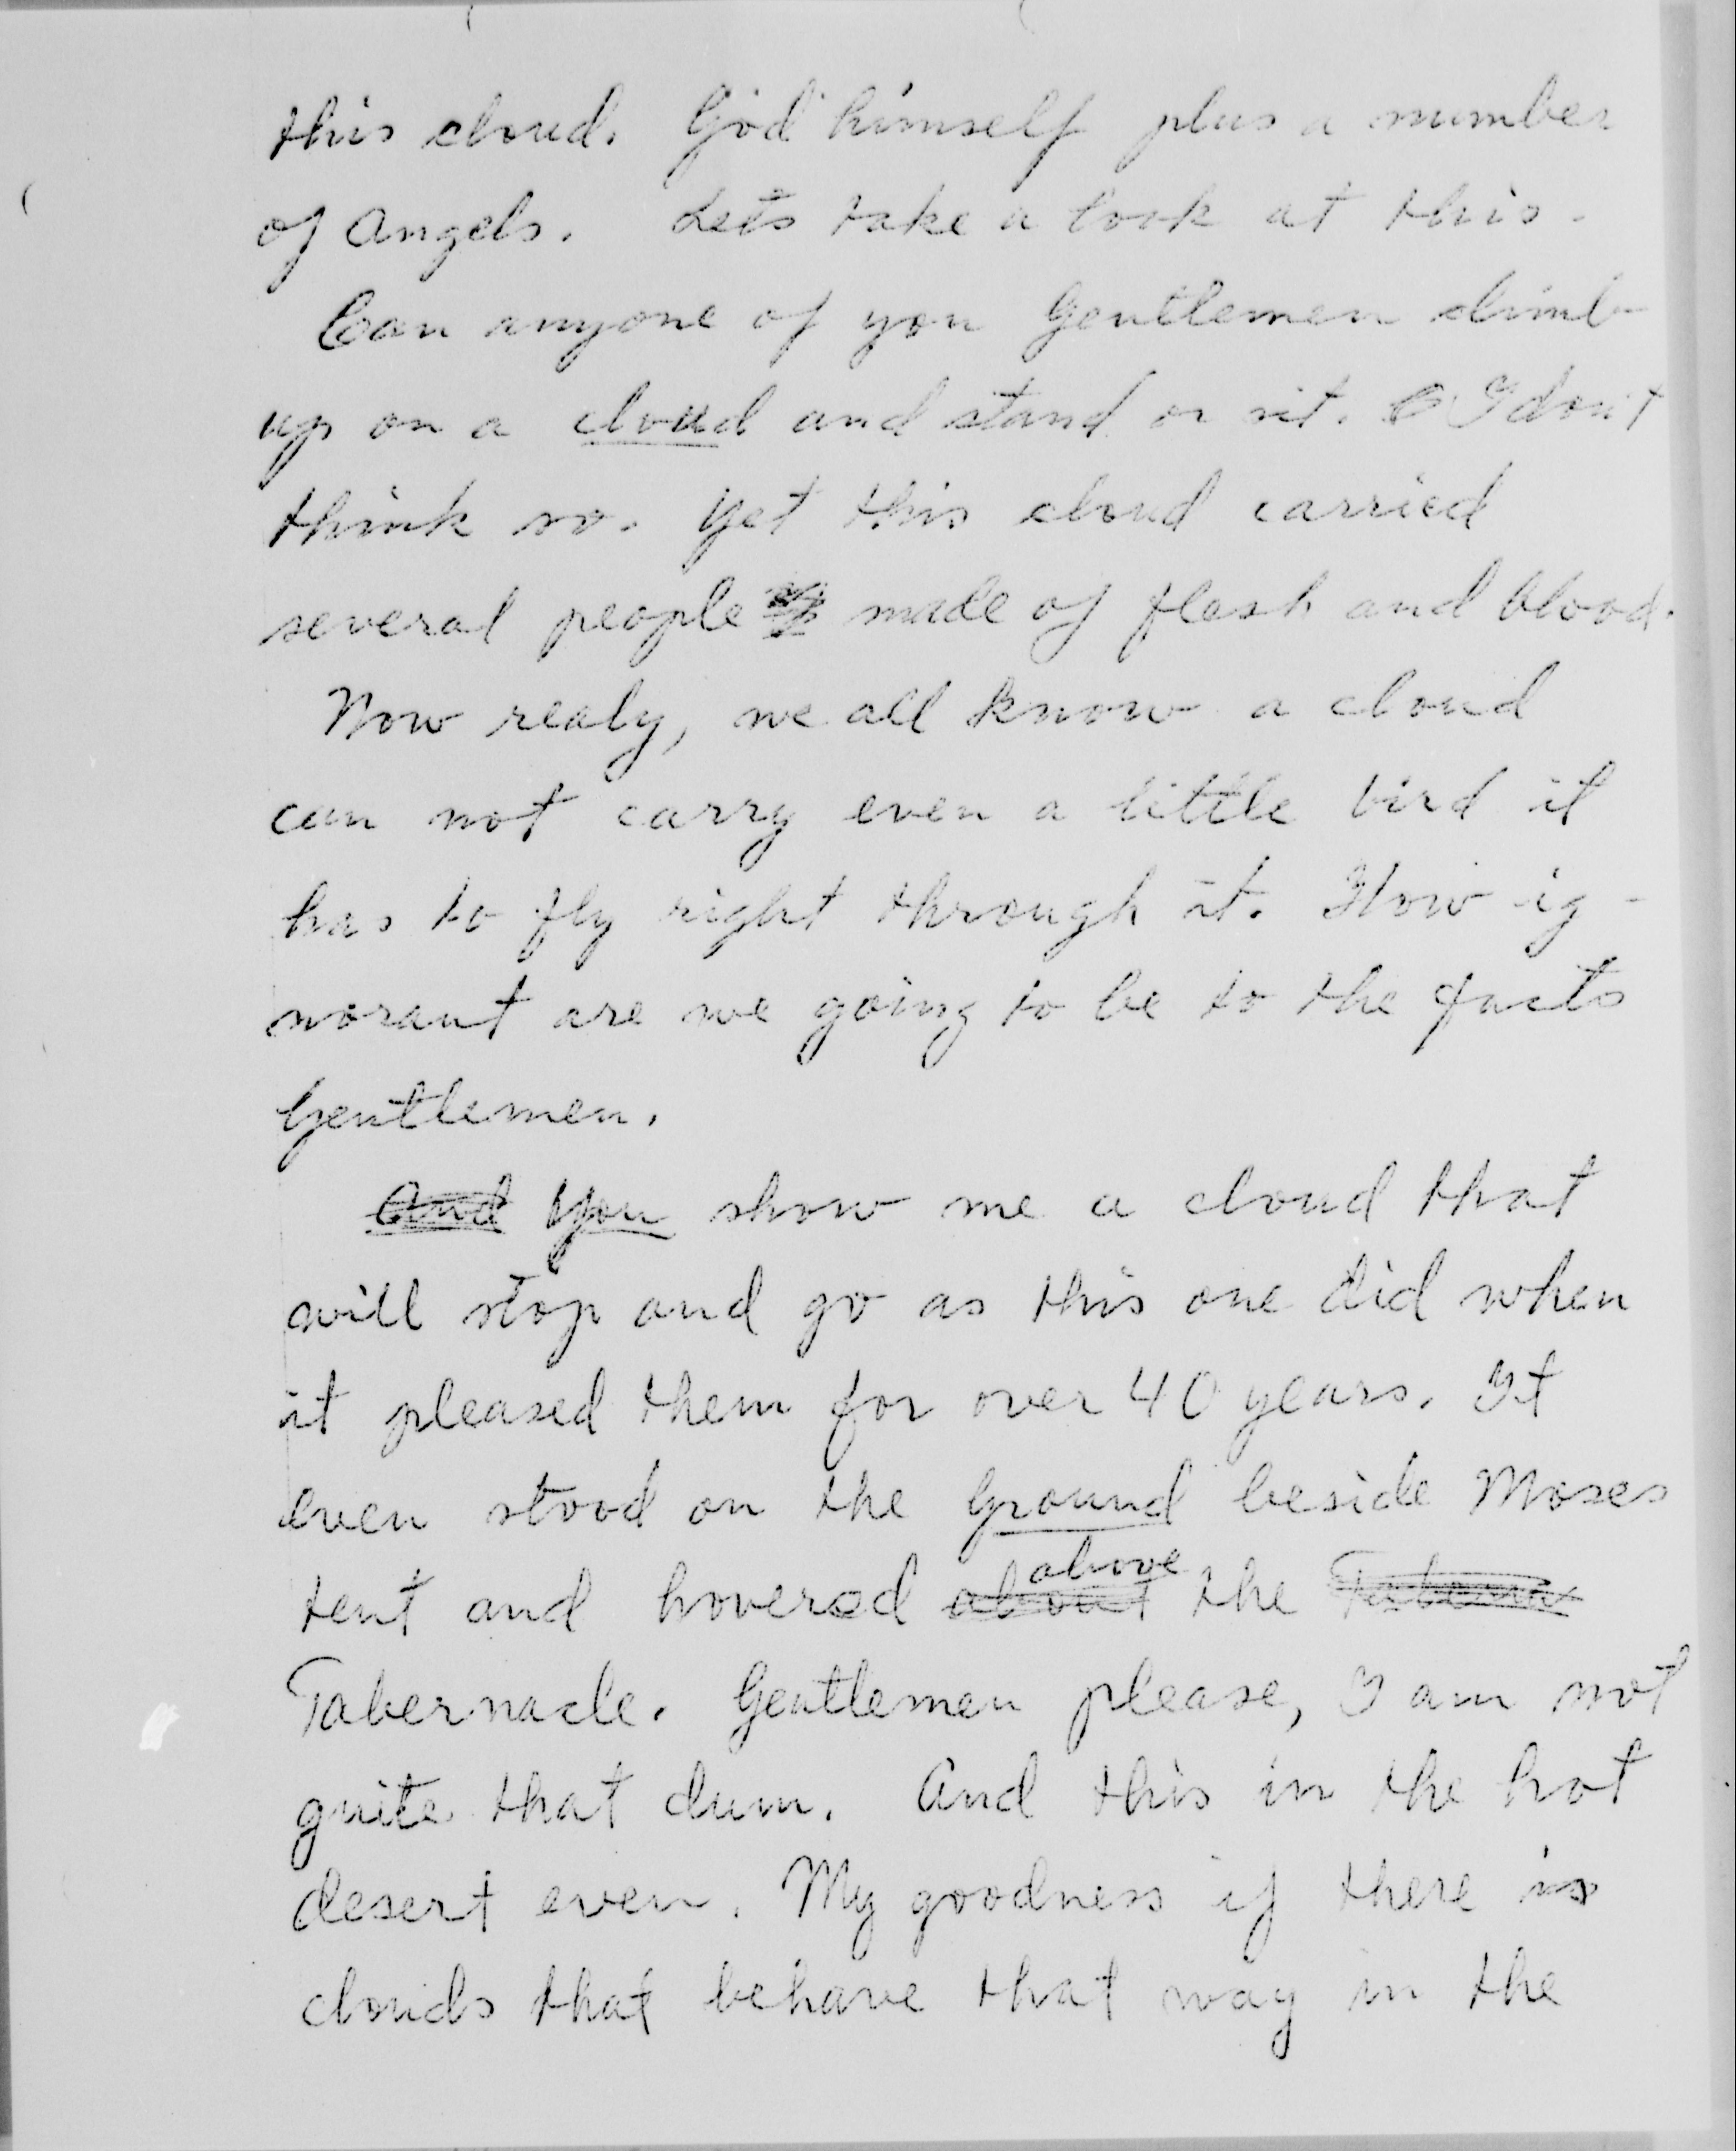 this cloud. God himself plus a number
of Angels. Lets take a look at this.
Can anyone of you Gentlemen climb
up on a cloud and stand or sit. I don't
think so. Yet this cloud carried
several people made of flesh and blood.
Now realy, we all know a cloud
can not carry even a little bird it
has to fly right through it. How ig-
norant are we going to be to the facts
Gentlemen.
And You show me a cloud that
will stop and go as this one did when
it pleased them for over 40 years. It
even stood on the Ground beside Moses
tent and hovered about above the Taberna
Tabernacle. Gentlemen please, I am not
quite that dum. And this in the hot
desert even. My goodness if there is
clouds that behave that way in the